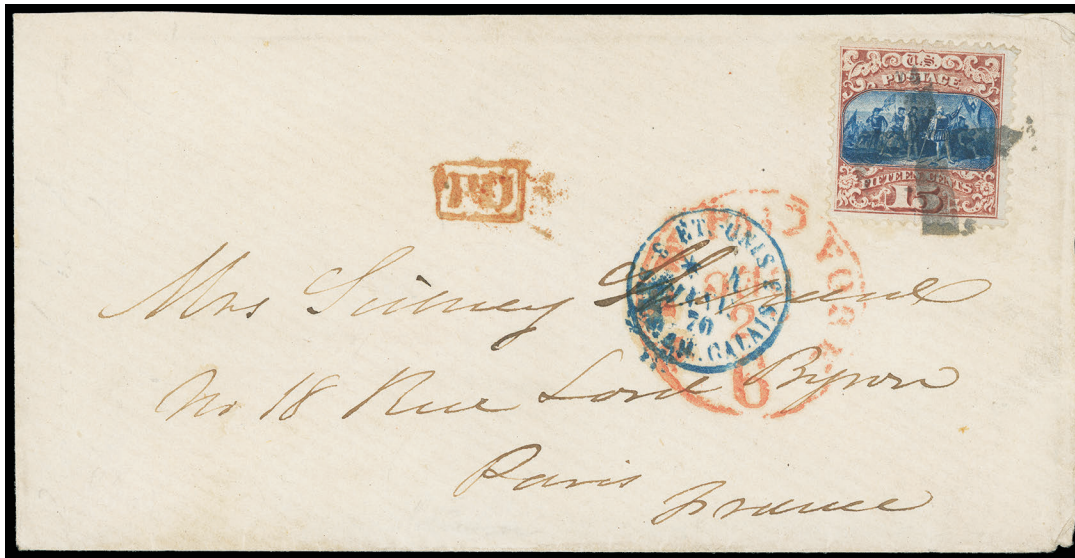 U.S.
POSTAGE
FIFTEEN CENTS
15
PD
ÉT-UNIS
JANV.
70
CALAIS
6
Mrs Sidney
No 18 Rue Lord Byron
Paris
France